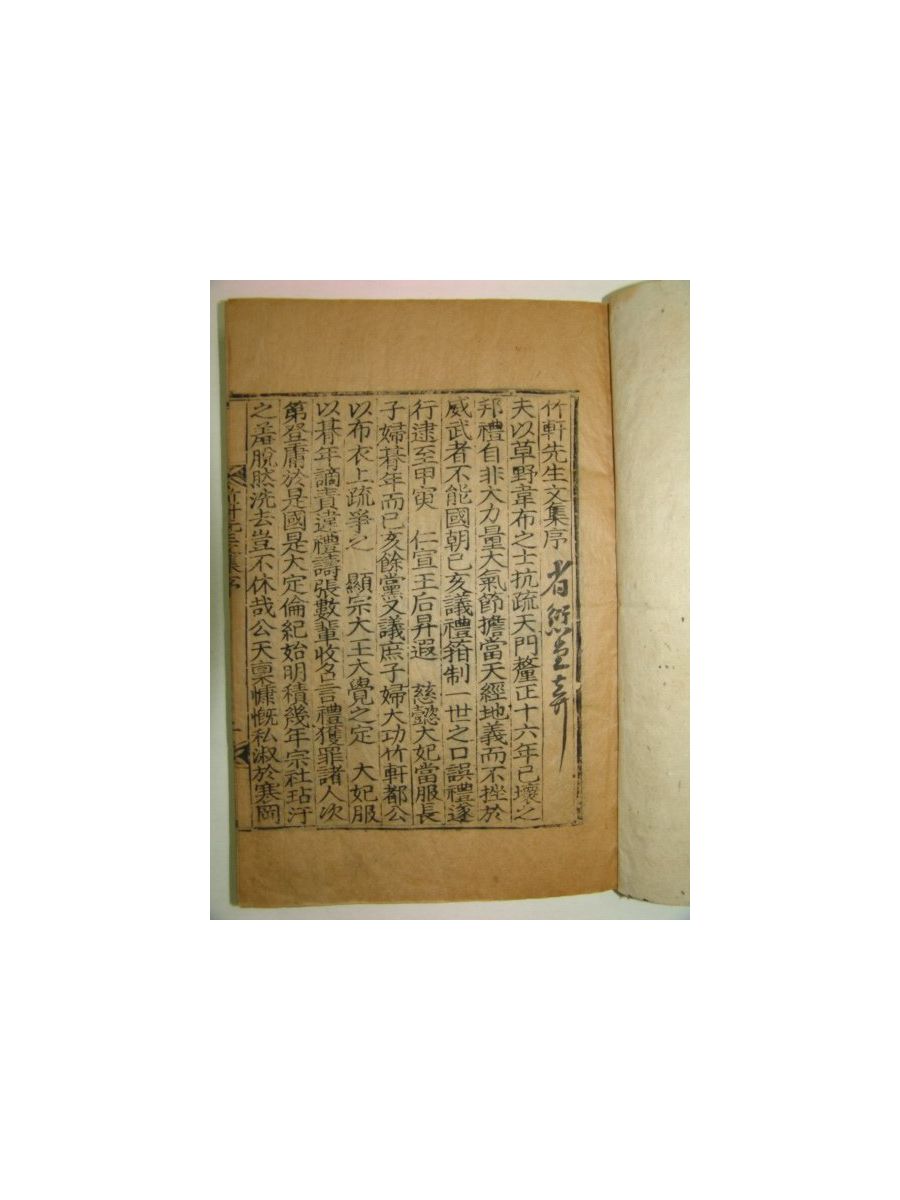 竹軒先生文集序
夫以草野韋布之士抗疏天門釐正十六年已壞之
邦禮自非大力量大氣節擔當天經地義而不挫於
威武者不能國朝己亥議禮箝制一世之口誤禮遂
行逮至甲寅 仁宣王后昇遐 慈懿大妃當服長
子婦朞年而己亥餘黨又議庶子婦大功竹軒都公
以布衣上疏爭之 顯宗大王大覺之定 大妃服
以朞年謫責違禮譸張數輩收召言禮獲罪諸人次
第登庸於是國是大定倫紀始明積幾年宗社玷汙
之辱脫然洗去豈不休哉公天稟慷慨私淑於寒岡